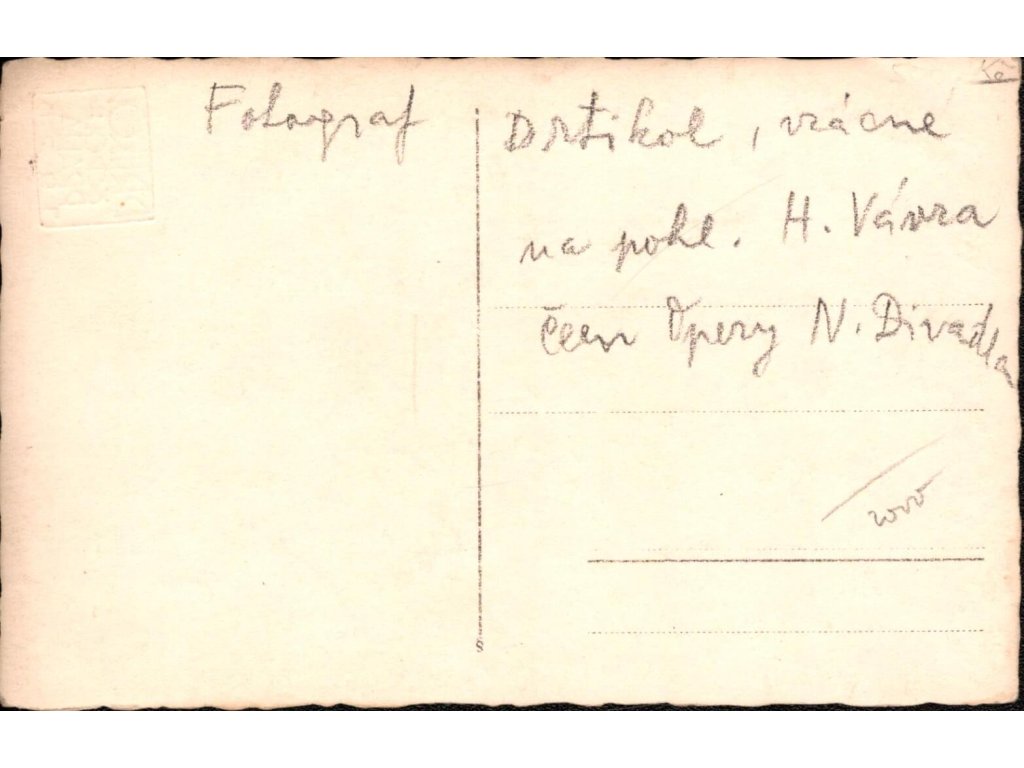 Fotograf Drtikol, vzácné
na pohl. H. Vávra
člen Opery N. Divadla
2000